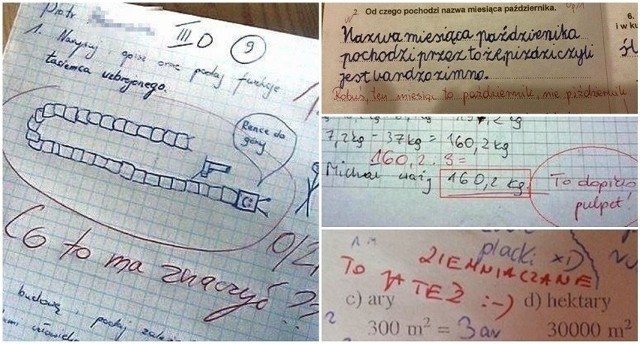 Piotr
III D
9
1. Narysuj opisz oraz podaj funkcje
tasiemca uzbrojonego.
Rence do
góry
Co to ma znaczyć
budową, podaj
2. Od czego pochodzi nazwa miesiąca października.
Nazwa miesiąca października
pochodzi przez to że piździ czyli
jest bardzo zimno.
ten miesiąc to październik, nie piździernik
6.
i w ku
7,2 kg - 37kg = 160,2 kg
160,2 : 3 =
Michał waży 160,2 kg
To dopiero
pulpet!
placki xD
ZIEMNIACZANE
TO JA TEŻ :-)
c) ary
d) hektary
300 m² = 3 ar
30000 m²